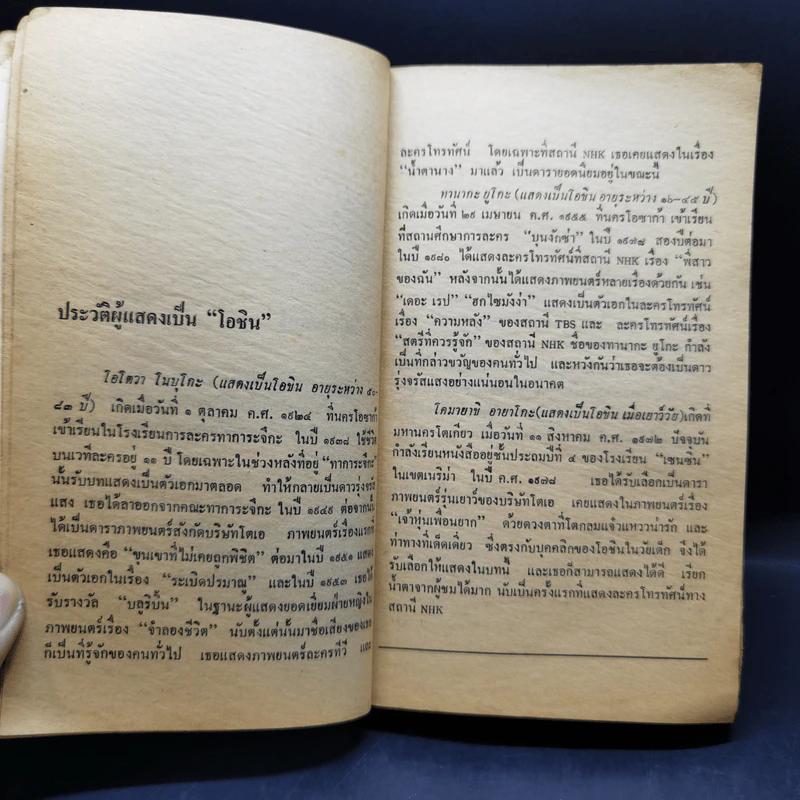 ประวัติผู้แสดงเป็น “โอชิน”
โอโตวา โนบุโกะ (แสดงเป็นโอชิน อายุระหว่าง ๕๐-
๘๓ ปี) เกิดเมื่อวันที่ ๑ ตุลาคม ค.ศ. ๑๙๒๔ ที่นครโอซาก้า
เข้าเรียนในโรงเรียนการละครทาการะจึกะ ในปี ๑๙๓๘ ใช้ชีวิต
บนเวทีละครอยู่ ๑๑ ปี โดยเฉพาะในช่วงหลังที่อยู่ “ทาการะจึกะ”
นั้นรับบทแสดงเป็นตัวเอกมาตลอด ทำให้กลายเป็นดาวรุ่งจรัส
แสง เธอได้ลาออกจากคณะทาการะจึกะ ในปี ๑๙๔๙ ต่อจากนั้น
ได้เป็นดาราภาพยนตร์สังกัดบริษัทโตเอ ภาพยนตร์เรื่องแรกที่
เธอแสดงคือ “ขุนเขาที่ไม่เคยถูกพิชิต” ต่อมาในปี ๑๙๕๑ แสดง
เป็นตัวเอกในเรื่อง “ระเบิดปรมาณู” และในปี ๑๙๕๓ เธอได้
รับรางวัล “บลูริบิ้น” ในฐานะผู้แสดงยอดเยี่ยมฝ่ายหญิงใน
ภาพยนตร์เรื่อง “จำลองชีวิต” นับตั้งแต่นั้นมาชื่อเสียงของเธอ
ก็เป็นที่รู้จักของคนทั่วไป เธอแสดงภาพยนตร์ละครทีวี และ
ละครโทรทัศน์ โดยเฉพาะที่สถานี NHK เธอเคยแสดงในเรื่อง
“น้ำตานาง” มาแล้ว เป็นดารายอดนิยมอยู่ในขณะนี้
ทานากะ ยูโกะ (แสดงเป็นโอชิน อายุระหว่าง ๑๖-๔๕ ปี)
เกิดเมื่อวันที่ ๒๙ เมษายน ค.ศ. ๑๙๕๕ ที่นครโอซาก้า เข้าเรียน
ที่สถานศึกษาการละคร “บุนงักซ่า” ในปี ๑๙๗๘ สองปีต่อมา
ในปี ๑๙๘๐ ได้แสดงละครโทรทัศน์ที่สถานี NHK เรื่อง “พี่สาว
ของฉัน” หลังจากนั้นได้แสดงภาพยนตร์หลายเรื่องด้วยกัน เช่น
“เดอะ เรป” “ฮกไซมังง่า” แสดงเป็นตัวเอกในละครโทรทัศน์
เรื่อง “ความหลัง” ของสถานี TBS และ ละครโทรทัศน์เรื่อง
“สตรีที่ควรรู้จัก” ของสถานี NHK ชื่อของทานากะ ยูโกะ กำลัง
เป็นที่กล่าวขวัญของคนทั่วไป และหวังกันว่าเธอจะต้องเป็นดาว
รุ่งจรัสแสงอย่างแน่นอนในอนาคต
โคบายาชิ อายาโกะ(แสดงเป็นโอชิน เมื่อเยาว์วัย)เกิดที่
มหานครโตเกียว เมื่อวันที่ ๑๑ สิงหาคม ค.ศ. ๑๙๗๒ ปัจจุบัน
กำลังเรียนหนังสืออยู่ชั้นประถมปีที่ ๔ ของโรงเรียน “เซนชิน”
ในเขตเนริม่า ในปี ค.ศ. ๑๙๗๘ เธอได้รับเลือกเป็นดารา
ภาพยนตร์รุ่นเยาว์ของบริษัทโตเอ เคยแสดงในภาพยนตร์เรื่อง
“เจ้าหุ่นเพื่อนยาก” ด้วยดวงตาที่โตกลมแจ๋วแหววน่ารัก และ
ท่าทางที่เด็ดเดี่ยว ซึ่งตรงกับบุคคลิกของโอชินในวัยเด็ก จึงได้
รับเลือกให้แสดงในบทนี้ และเธอก็สามารถแสดงได้ดี เรียก
น้ำตาจากผู้ชมได้มาก นับเป็นครั้งแรกที่แสดงละครโทรทัศน์ทาง
สถานี NHK